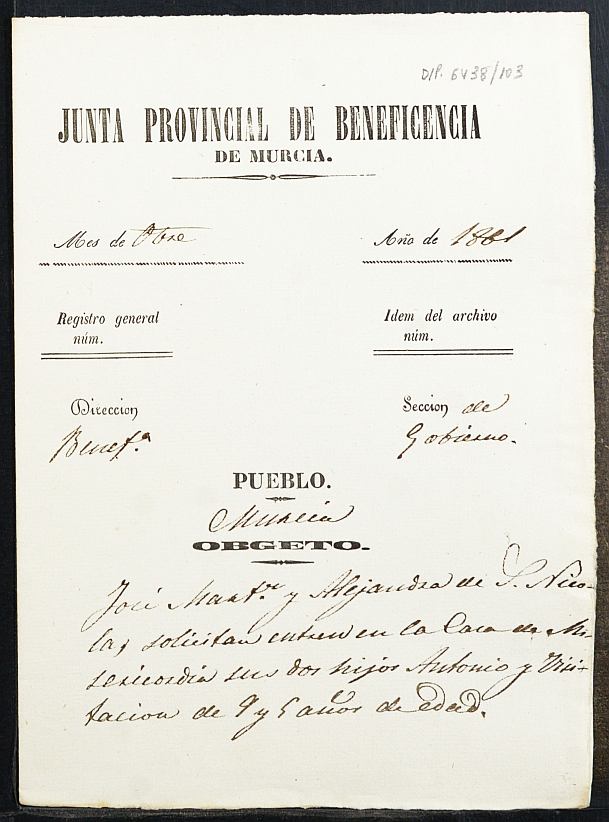 DIP. 6438/103
JUNTA PROVINCIAL DE BENEFICENCIA
DE MURCIA.
Mes de Obre
Año de 1861
Registro general
núm.
Idem del archivo
núm.
Direccion
Benef.ª
Seccion de
Gobierno.
PUEBLO.
Murcia
OBGETO.
José Mart.z y Alejandra de S. Nico-
las, solicitan entren en la Casa de Mi-
sericordia sus dos hijos Antonio y Visi-
tacion de 9 y 5 años de edad.